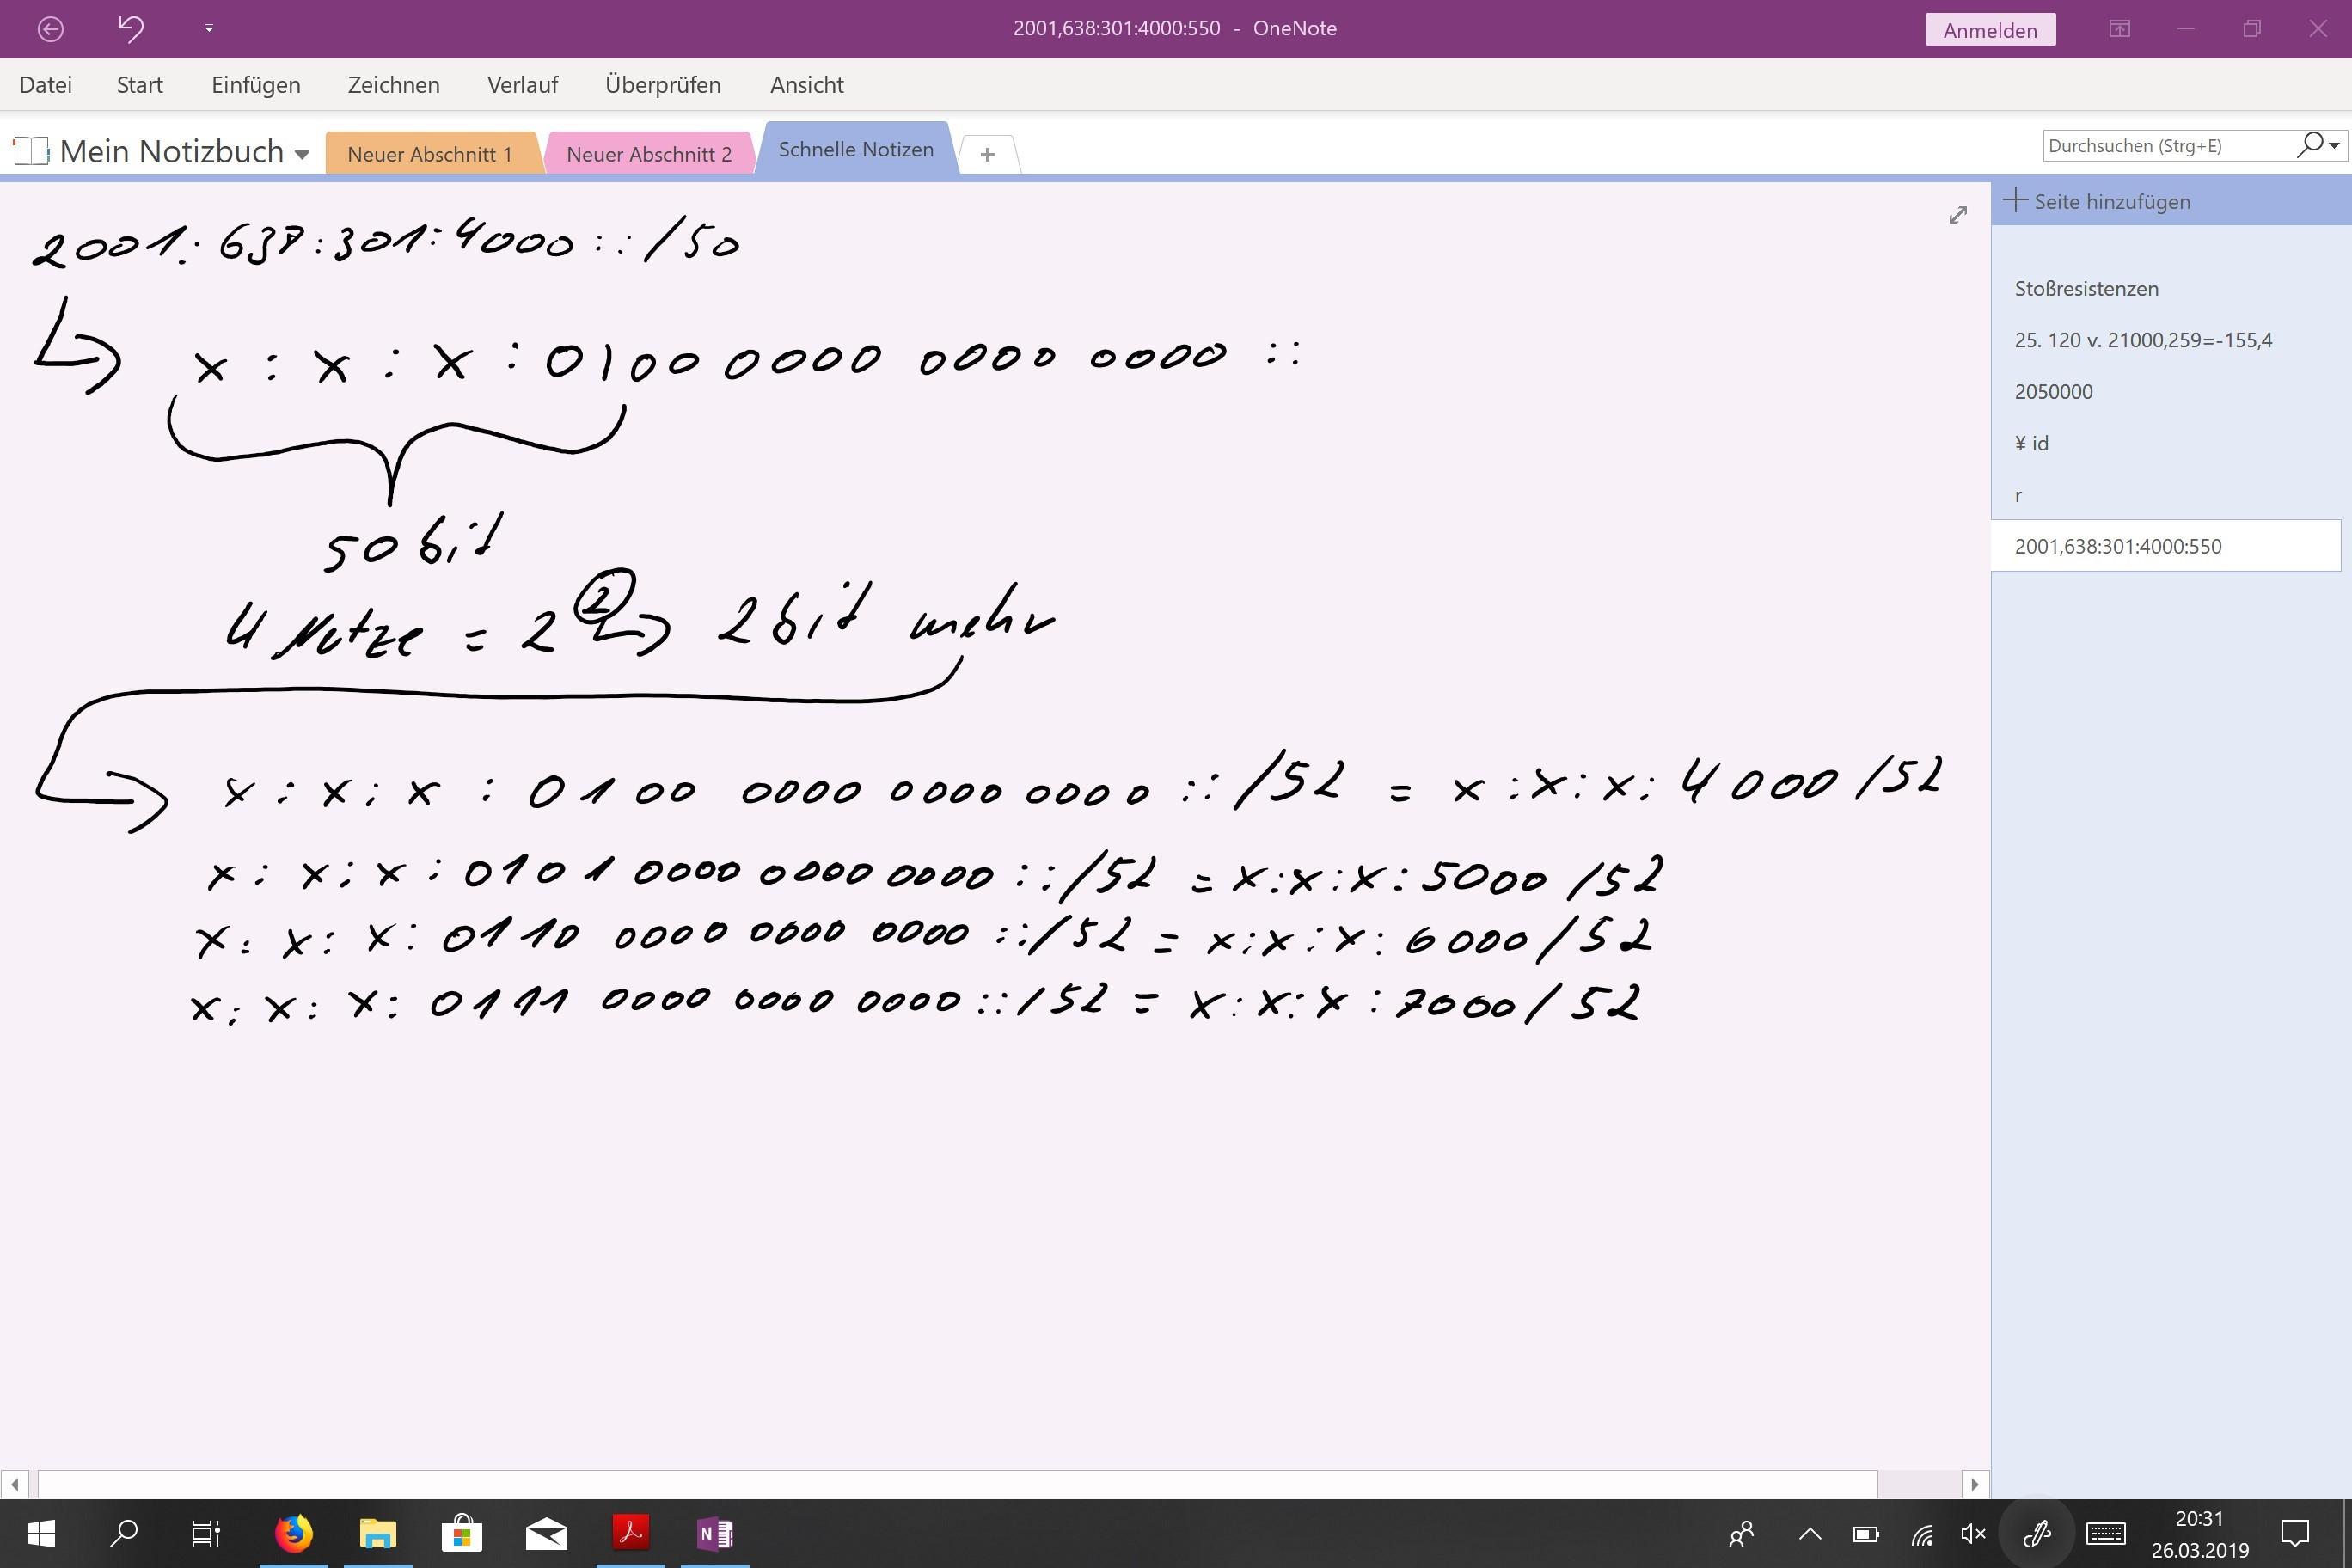 2001,638:301:4000:550 - OneNote
Anmelden
Datei Start Einfügen Zeichnen Verlauf Überprüfen Ansicht
Mein Notizbuch Neuer Abschnitt 1 Neuer Abschnitt 2 Schnelle Notizen +
Durchsuchen (Strg+E)
2001:638:301:4000::/50
x:x:x:0100 0000 0000 0000 ::
50 bit
4 Netze = 2² 2 bit mehr
x:x:x:0100 0000 0000 0000 ::/52 = x:x:x:4000/52
x:x:x:0101 0000 0000 0000 ::/52 = x:x:x:5000/52
x:x:x:0110 0000 0000 0000 ::/52 = x:x:x:6000/52
x:x:x:0111 0000 0000 0000 ::/52 = x:x:x:7000/52
Seite hinzufügen
Stoßresistenzen
25. 120 v. 21000,259=-155,4
2050000
¥ id
r
2001,638:301:4000:550
20:31
26.03.2019